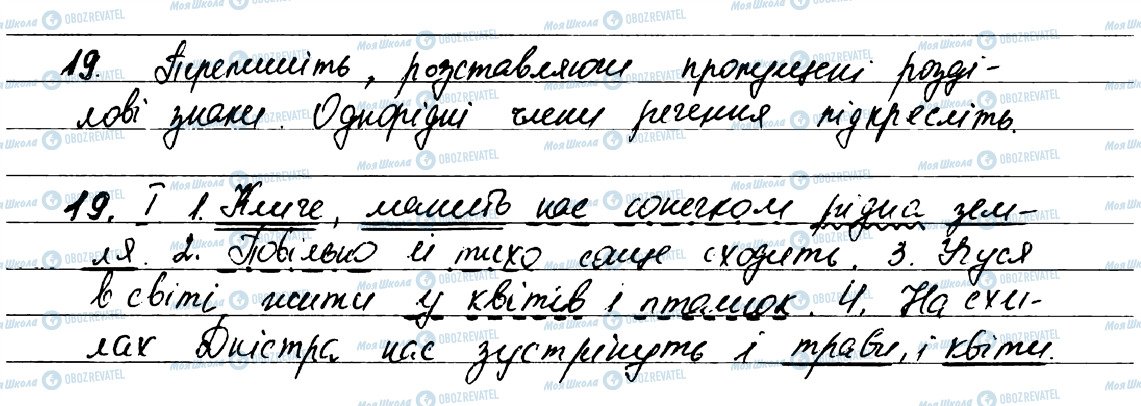 19. Перепишіть, розставляючи пропущені розді-
лові знаки. Однорідні члени речення підкресліть.
19. І 1. Кличе, манить нас сонечком рідна зем-
ля. 2. Повільно й тихо сонце сходить. 3. Куся
в світі жити у квітів і пташок. 4. На схи-
лах Дністра нас зустрінуть і трави, і квіти.